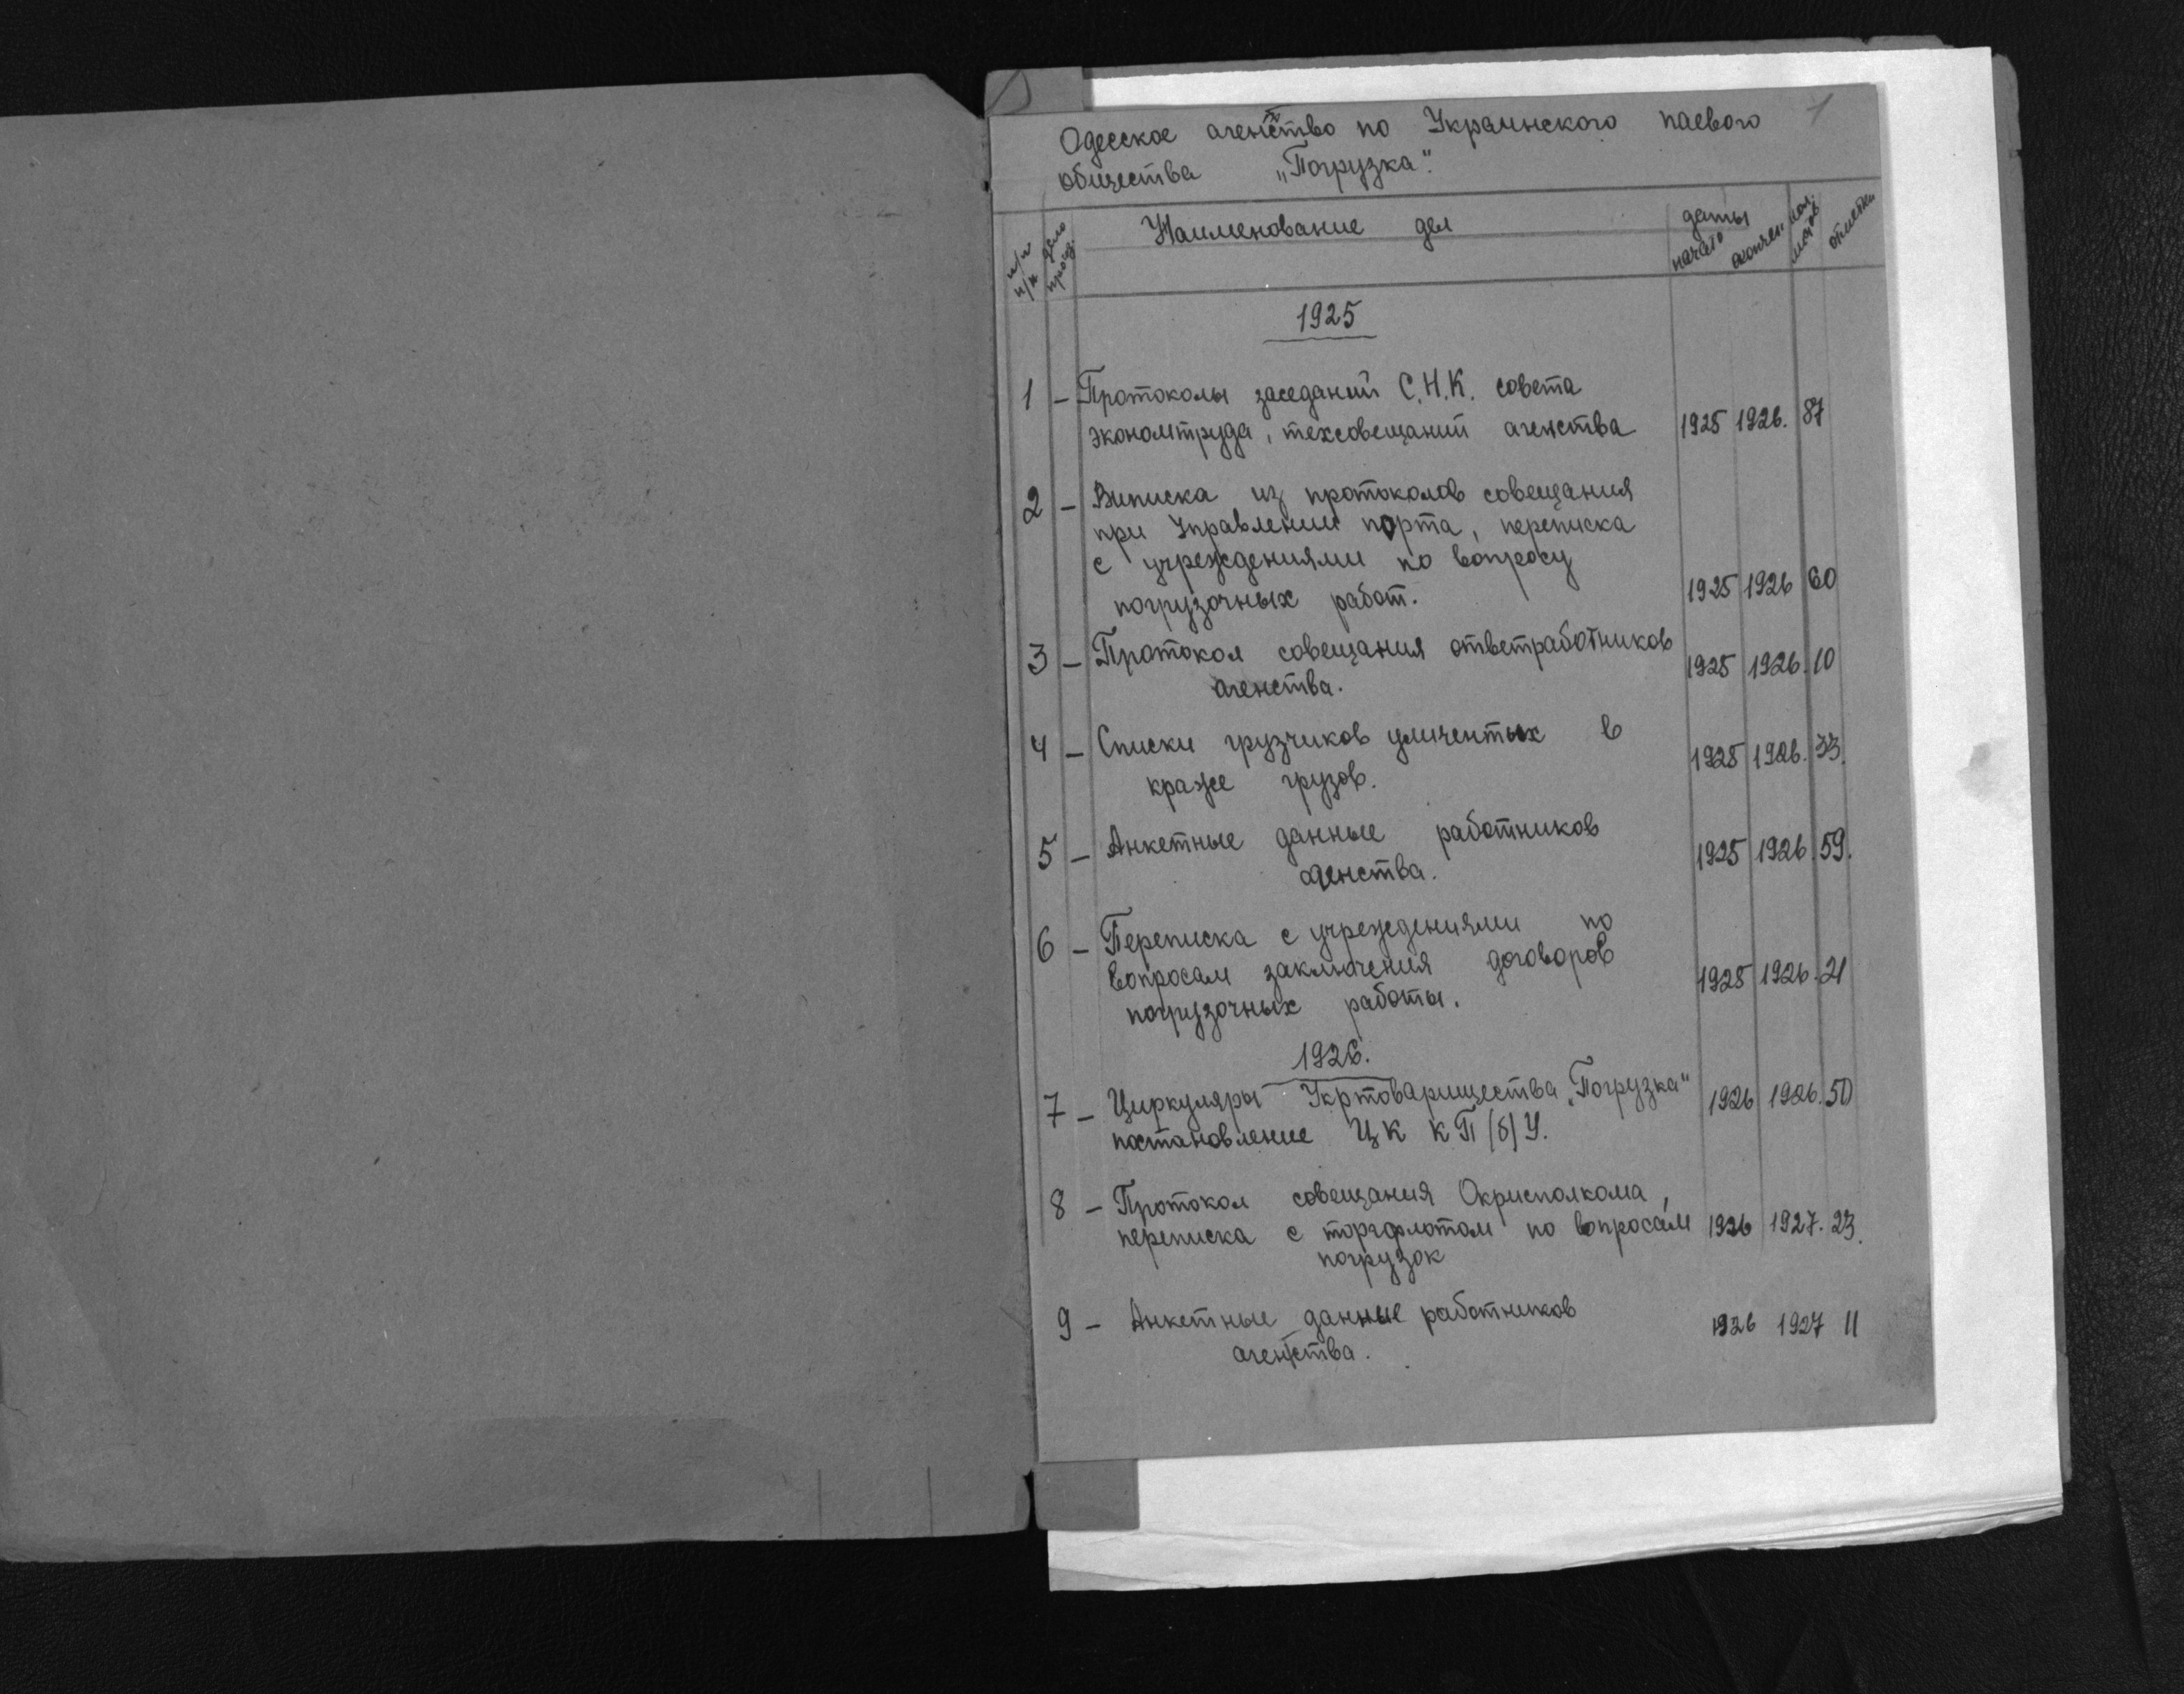 1
Одесское агентство по Украинского паевого
общества „Погрузка".
п/п
н/н
дело
произ.
Наименование дел
даты
начало
окончен.
кол.
листов
отметки
1925
1 – Протоколы заседаний С.Н.К. совета
экономтруда, техсовещаний агенства 1925 1926. 87
2 – Виписка из протоколов совещания
при Управлении порта, переписка
с учреждениями по вопросу
погрузочных работ. 1925 1926 60
3 – Протокол совещания ответработников 1925 1926. 10
агенства.
4 – Списки грузчиков уличентых в 1925 1926. 33.
краже грузов.
5 – Анкетные данные работников 1925 1926. 59.
агенства.
6 – Переписка с учреждениями по
вопросам заключения договоров 1925 1926. 21
погрузочных работы.
1926.
7 – Циркуляры Укртоварищества „Погрузка" 1926 1926. 50
постановление ЦК КП/б/У.
8 – Протокол совещания Окрисполкома,
переписка с торгфлотом по вопросам 1926 1927. 23.
погрузок
9 – Анкетные данные работников 1926 1927 11
агентства.